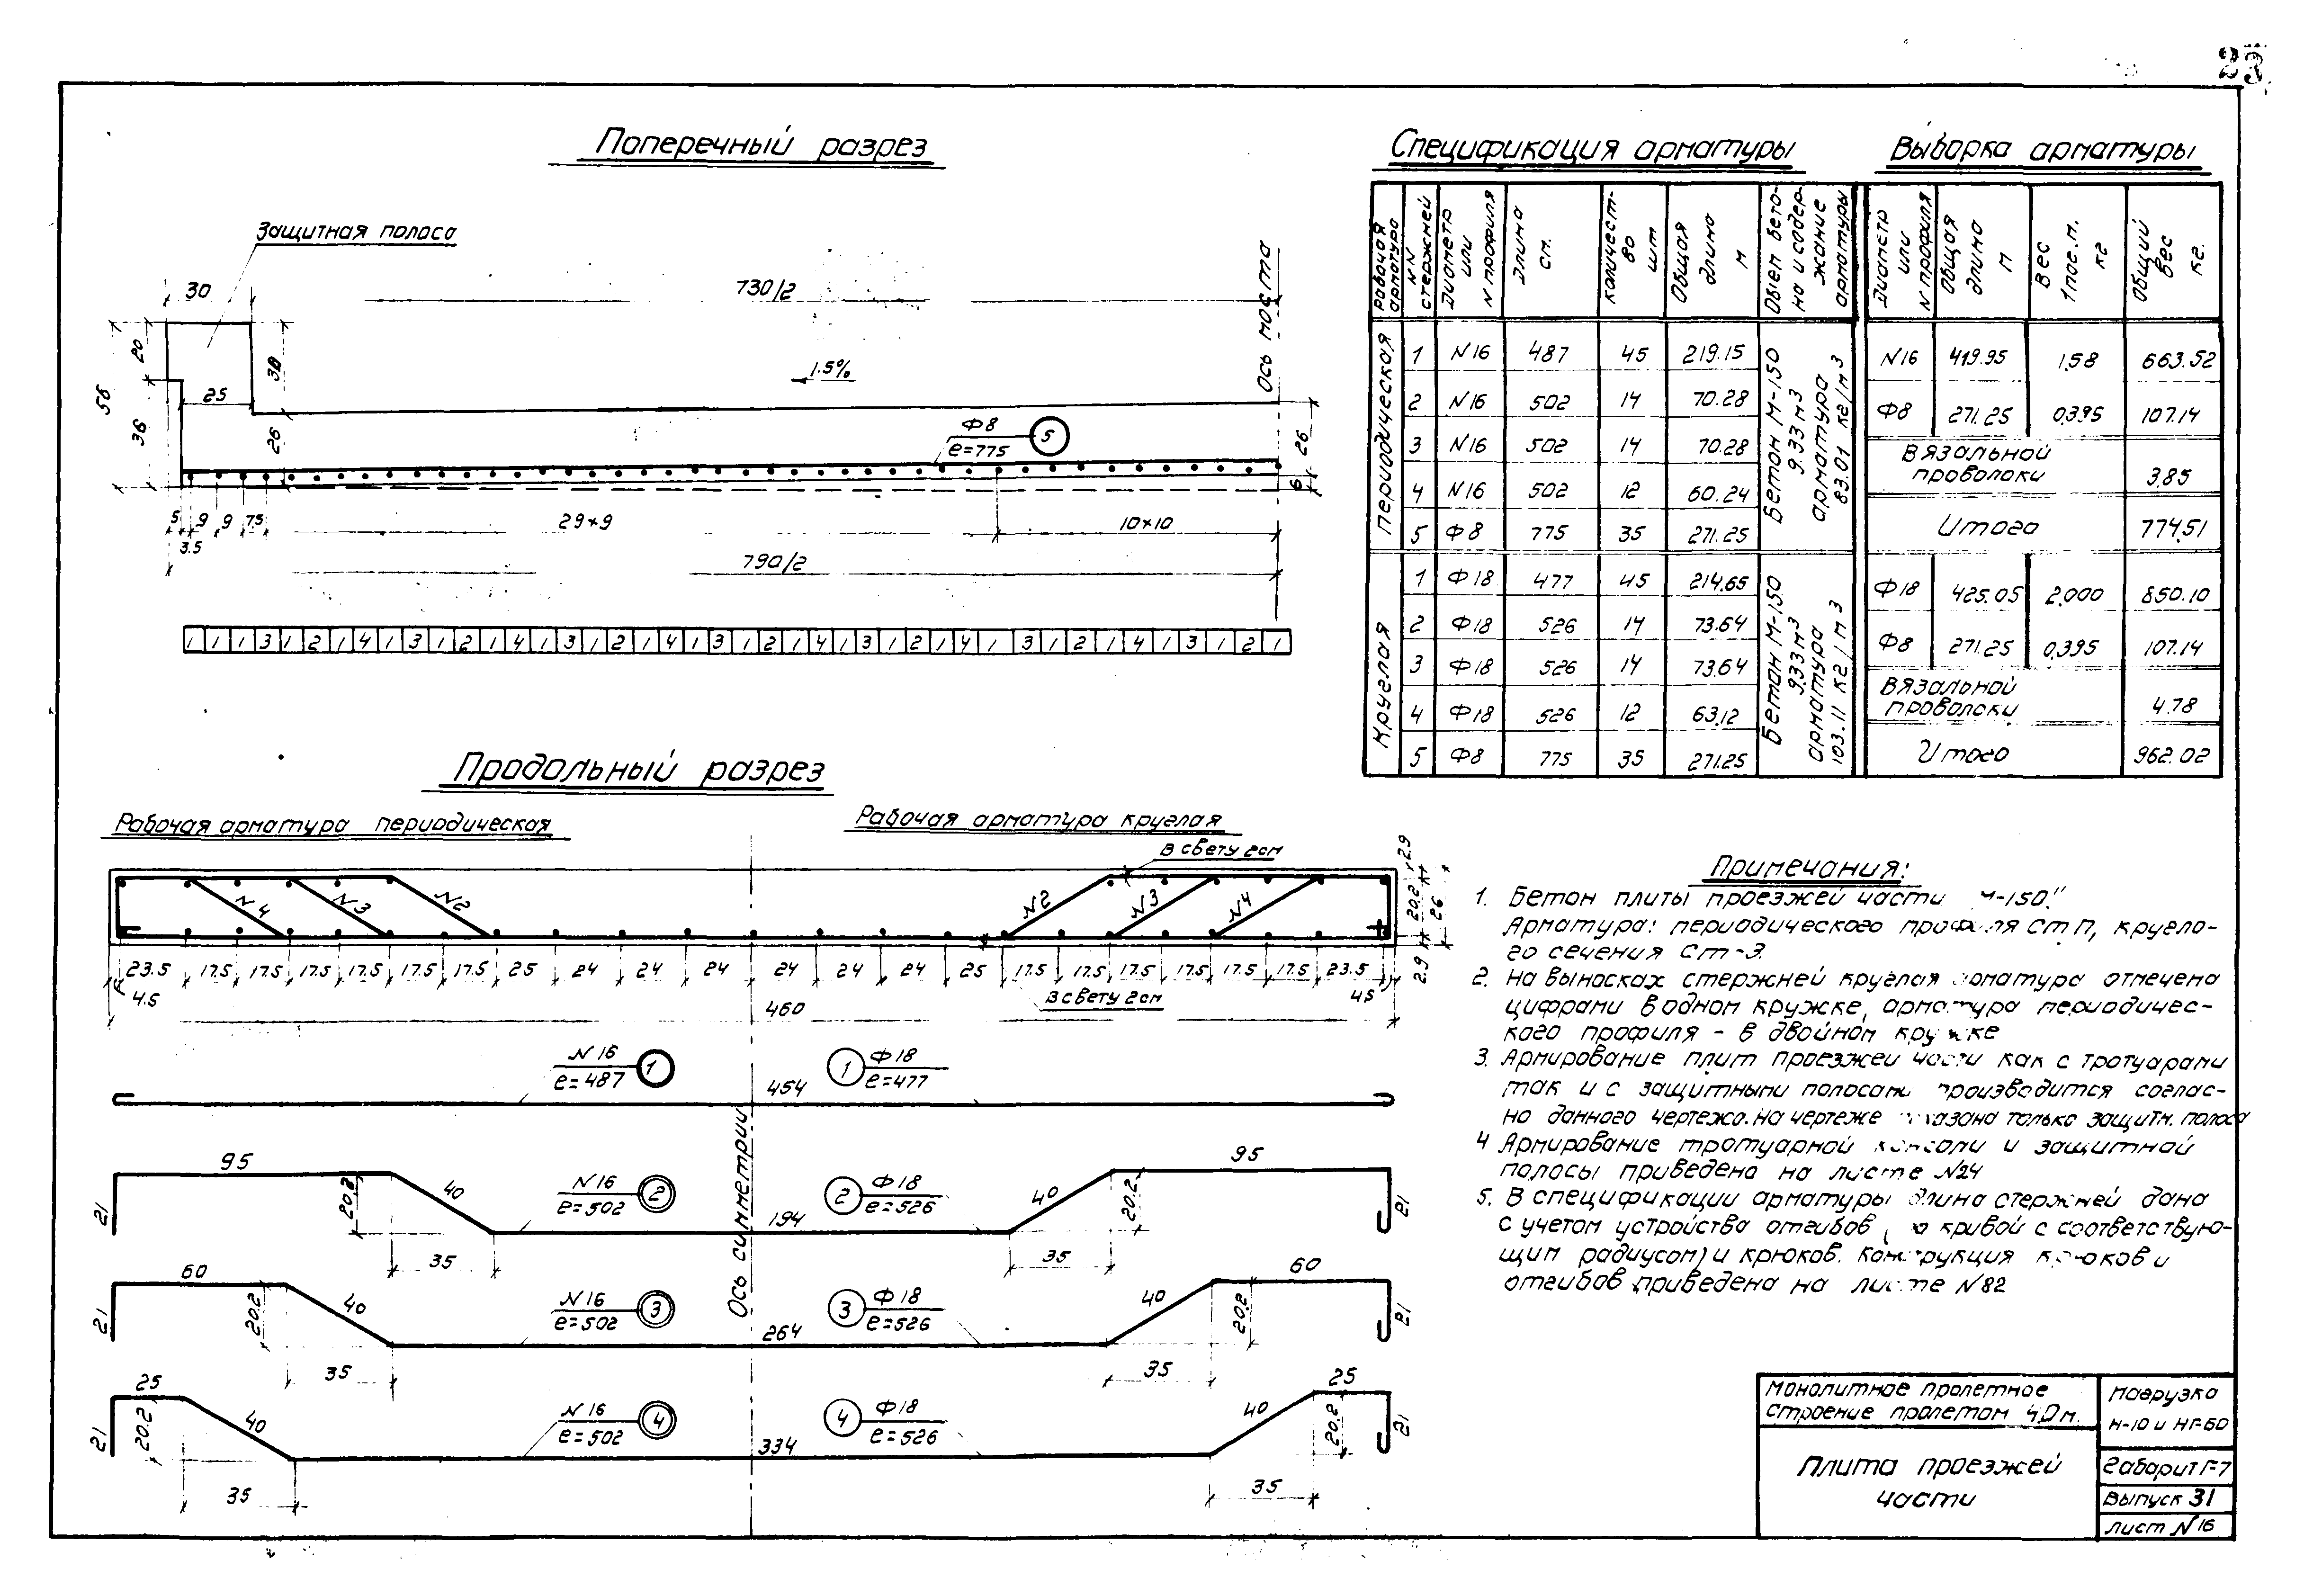 23
Поперечный разрез
Защитная полоса
30
730/2
Ось моста
1.5%
20
56
36
25
38
26
Ф8
е=775
5
26
6
5 9 9 7.5 29×9 10×10
3.5
790/2
1 1 1 3 1 2 1 4 1 3 1 2 1 4 1 3 1 2 1 4 1 3 1 2 1 4 1 3 1 2 1 4 1 3 1 2 1 4 1 3 1 2 1
Спецификация арматуры
Рабочая арматура | NN стержней | Диаметр или N профиля | Длина см. | Количество шт | Общая длина м | Объем бетона и содержание арматуры
Периодическая
1 N16 487 45 219.15
2 N16 502 14 70.28
3 N16 502 14 70.28
4 N16 502 12 60.24
5 Ф8 775 35 271.25
Бетон М-150
9.33 м3
арматура
83.01 кг/м3
Круглая
1 Ф18 477 45 214.65
2 Ф18 526 14 73.64
3 Ф18 526 14 73.64
4 Ф18 526 12 63.12
5 Ф8 775 35 271.25
Бетон М-150
9.33 м3
арматура
103.11 кг/м3
Выборка арматуры
Диаметр или N профиля | Общая длина м | Вес 1 пог.м. кг | Общий вес кг.
N16 419.95 1.58 663.52
Ф8 271.25 0.395 107.14
Вязальной проволоки 3.85
Итого 774.51
Ф18 425.05 2.000 850.10
Ф8 271.25 0.395 107.14
Вязальной проволоки 4.78
Итого 962.02
Продольный разрез
Рабочая арматура периодическая
Рабочая арматура круглая
в свету 2 см
N4 N3 N2 N2 N3 N4
2.9
20.2
26
2.9
23.5 17.5 17.5 17.5 17.5 17.5 17.5 25 24 24 24 24 24 24 25 17.5 17.5 17.5 17.5 17.5 17.5 23.5
4.5
в свету 2 см
4.5
460
N16
е=487
1
1
Ф18
е=477
454
Ось симметрии
21
95
20.2
40
35
N16
е=502
2
2
Ф18
е=526
194
40
35
20.2
95
21
21
60
20.2
40
35
N16
е=502
3
3
Ф18
е=526
264
40
35
20.2
60
21
21
25
20.2
40
35
N16
е=502
4
4
Ф18
е=526
334
40
35
20.2
25
21
Примечания:
1. Бетон плиты проезжей части „М-150."
Арматура: периодического профиля Ст П, кругло-
го сечения Ст-3.
2. На выносках стержней круглая арматура отмечена
цифрами в одном кружке, арматура периодичес-
кого профиля - в двойном кружке
3. Армирование плит проезжей части как с тротуарами
так и с защитными полосами производится соглас-
но данного чертежа. На чертеже показана только защитн. полоса
4 Армирование тротуарной консоли и защитной
полосы приведено на листе N24
5. В спецификации арматуры длина стержней дана
с учетом устройства отгибов (по кривой с соответствую-
щим радиусом) и крюков. Конструкция крюков и
отгибов приведена на листе N82
Монолитное пролетное
строение пролетом 4.0 м.
Плита проезжей
части
Нагрузка
Н-10 и НГ-60
Габарит Г-7
Выпуск 31
Лист N16